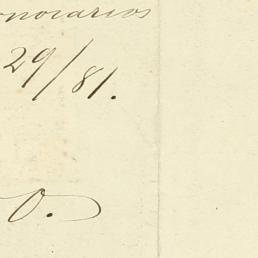 onorarios
29/81.
O.